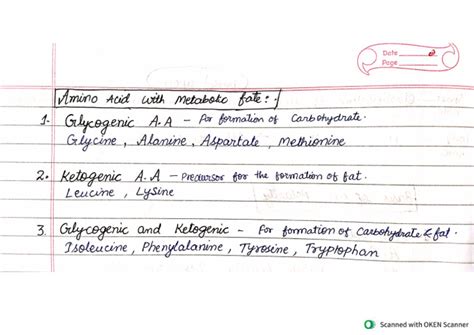 Date
Page
Amino Acid with Metabolic fate:-
1. Glycogenic A.A - For formation of Carbohydrate.
Glycine, Alanine, Aspartate, Methionine
2. Ketogenic A.A - Precursor for the formation of fat.
Leucine, Lysine
3. Glycogenic and Ketogenic - For formation of Carbohydrate & fat.
Isoleucine, Phenylalanine, Tyrosine, Tryptophan
Scanned with OKEN Scanner